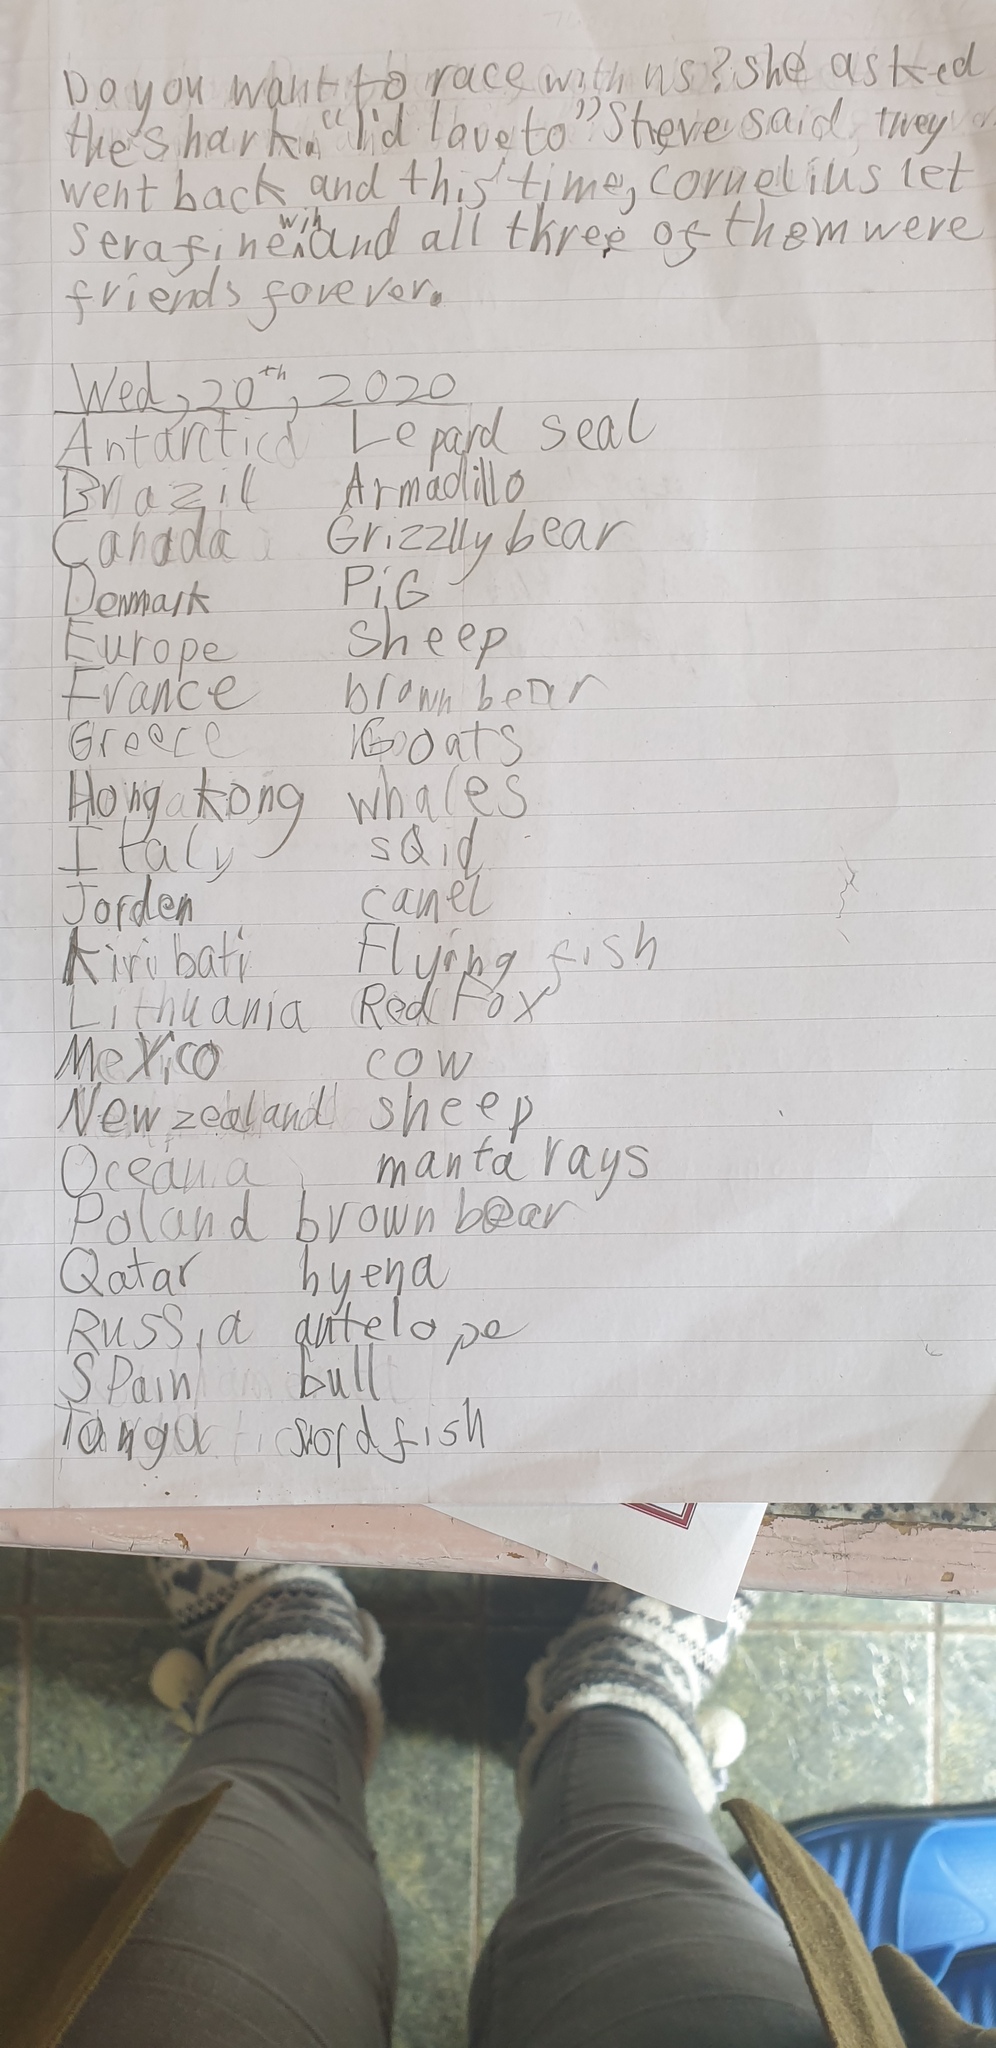 Do you want to race with us? she asked
the shark. "I'd love to" Steve said, they
went back and this time, cornelius let
serafine win and all three of them were
friends forever.
Wed, 20th, 2020
Antarctica Lepard seal
Brazil Armadillo
Canada Grizzlly bear
Denmark PiG
Europe sheep
France brown bear
Greece Goats
Hong kong whales
Italy sQid
Jorden camel
Kiribati Flying fish
Lithuania Red Fox
Mexico cow
New zealand sheep
Oceania manta rays
Poland brown bear
Qatar hyena
Russia antelope
SPain bull
Tonga swordfish